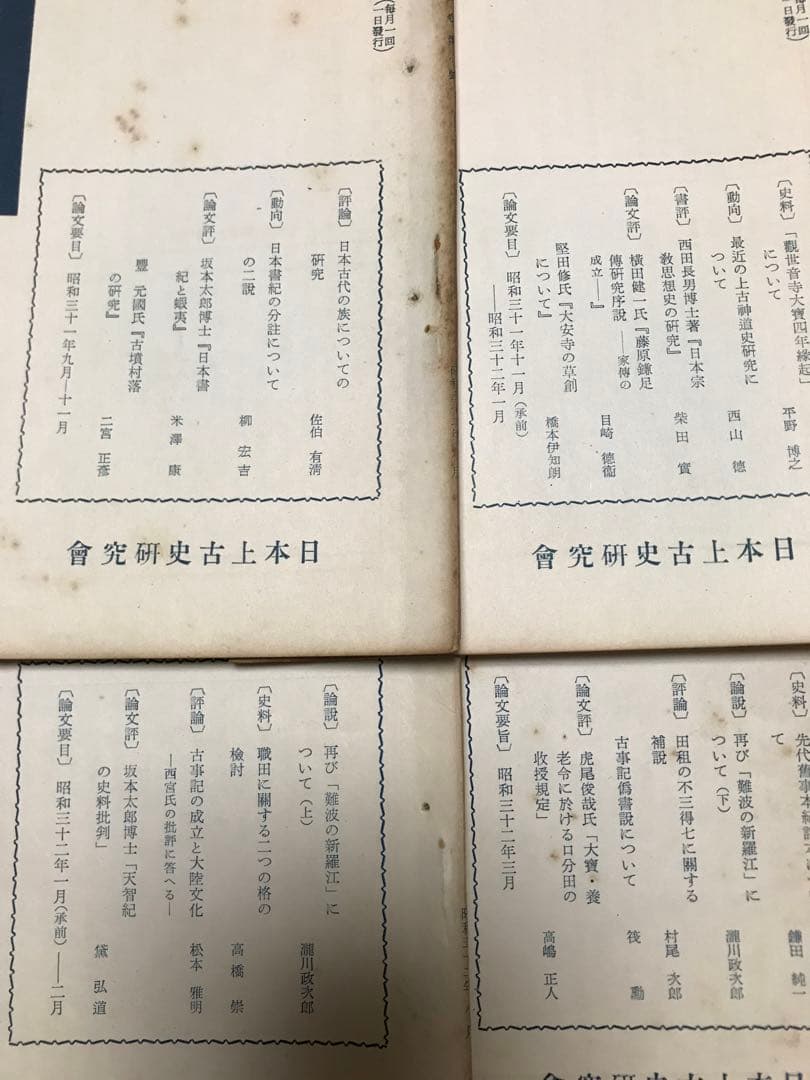 (每月一回
一日發行)
〔評論〕 日本古代の族についての
研究
佐伯 有淸
〔動向〕 日本書紀の分註について
の二説
柳 宏吉
〔論文評〕 坂本太郎博士『日本書
紀と蝦夷』
米澤 康
豐 元國氏『古墳村落
の研究』
二宮 正彥
〔論文要目〕 昭和三十一年九月―十一月
日本上古史研究會
(每月一回
一日發行)
〔史料〕 「觀世音寺大寶四年緣起」
について
平野 博之
〔動向〕 最近の上古神道史研究に
ついて
西山 德
〔書評〕 西田長男博士著『日本宗
敎思想史の研究』
柴田 實
〔論文評〕 橫田健一氏『藤原鎌足
傳硏究序說――家傳の
成立――』
目崎 德衞
堅田修氏『大安寺の草創
について』
橋本伊知朗
〔論文要目〕 昭和三十一年十一月(承前)
――昭和三十二年一月
日本上古史研究會
〔論説〕 再び「難波の新羅江」に
ついて(上)
瀧川政次郎
〔史料〕 職田に關する二つの格の
檢討
高橋 崇
〔評論〕 古事記の成立と大陸文化
―西宮氏の批評に答へる―
松本 雅明
〔論文評〕 坂本太郎博士「天智紀
の史料批判」
黛 弘道
〔論文要目〕 昭和三十二年一月(承前)――二月
〔史料〕 先代舊事本紀
て
鎌田 純一
〔論説〕 再び「難波の新羅江」に
ついて(下)
瀧川政次郎
〔評論〕 田租の不三得七に關する
補説
村尾 次郎
古事記僞書説について
筏 勳
〔論文評〕 虎尾俊哉氏「大寶・養
老令に於ける口分田の
收授規定」
高嶋 正人
〔論文要旨〕 昭和三十二年三月
日本上古史研究會